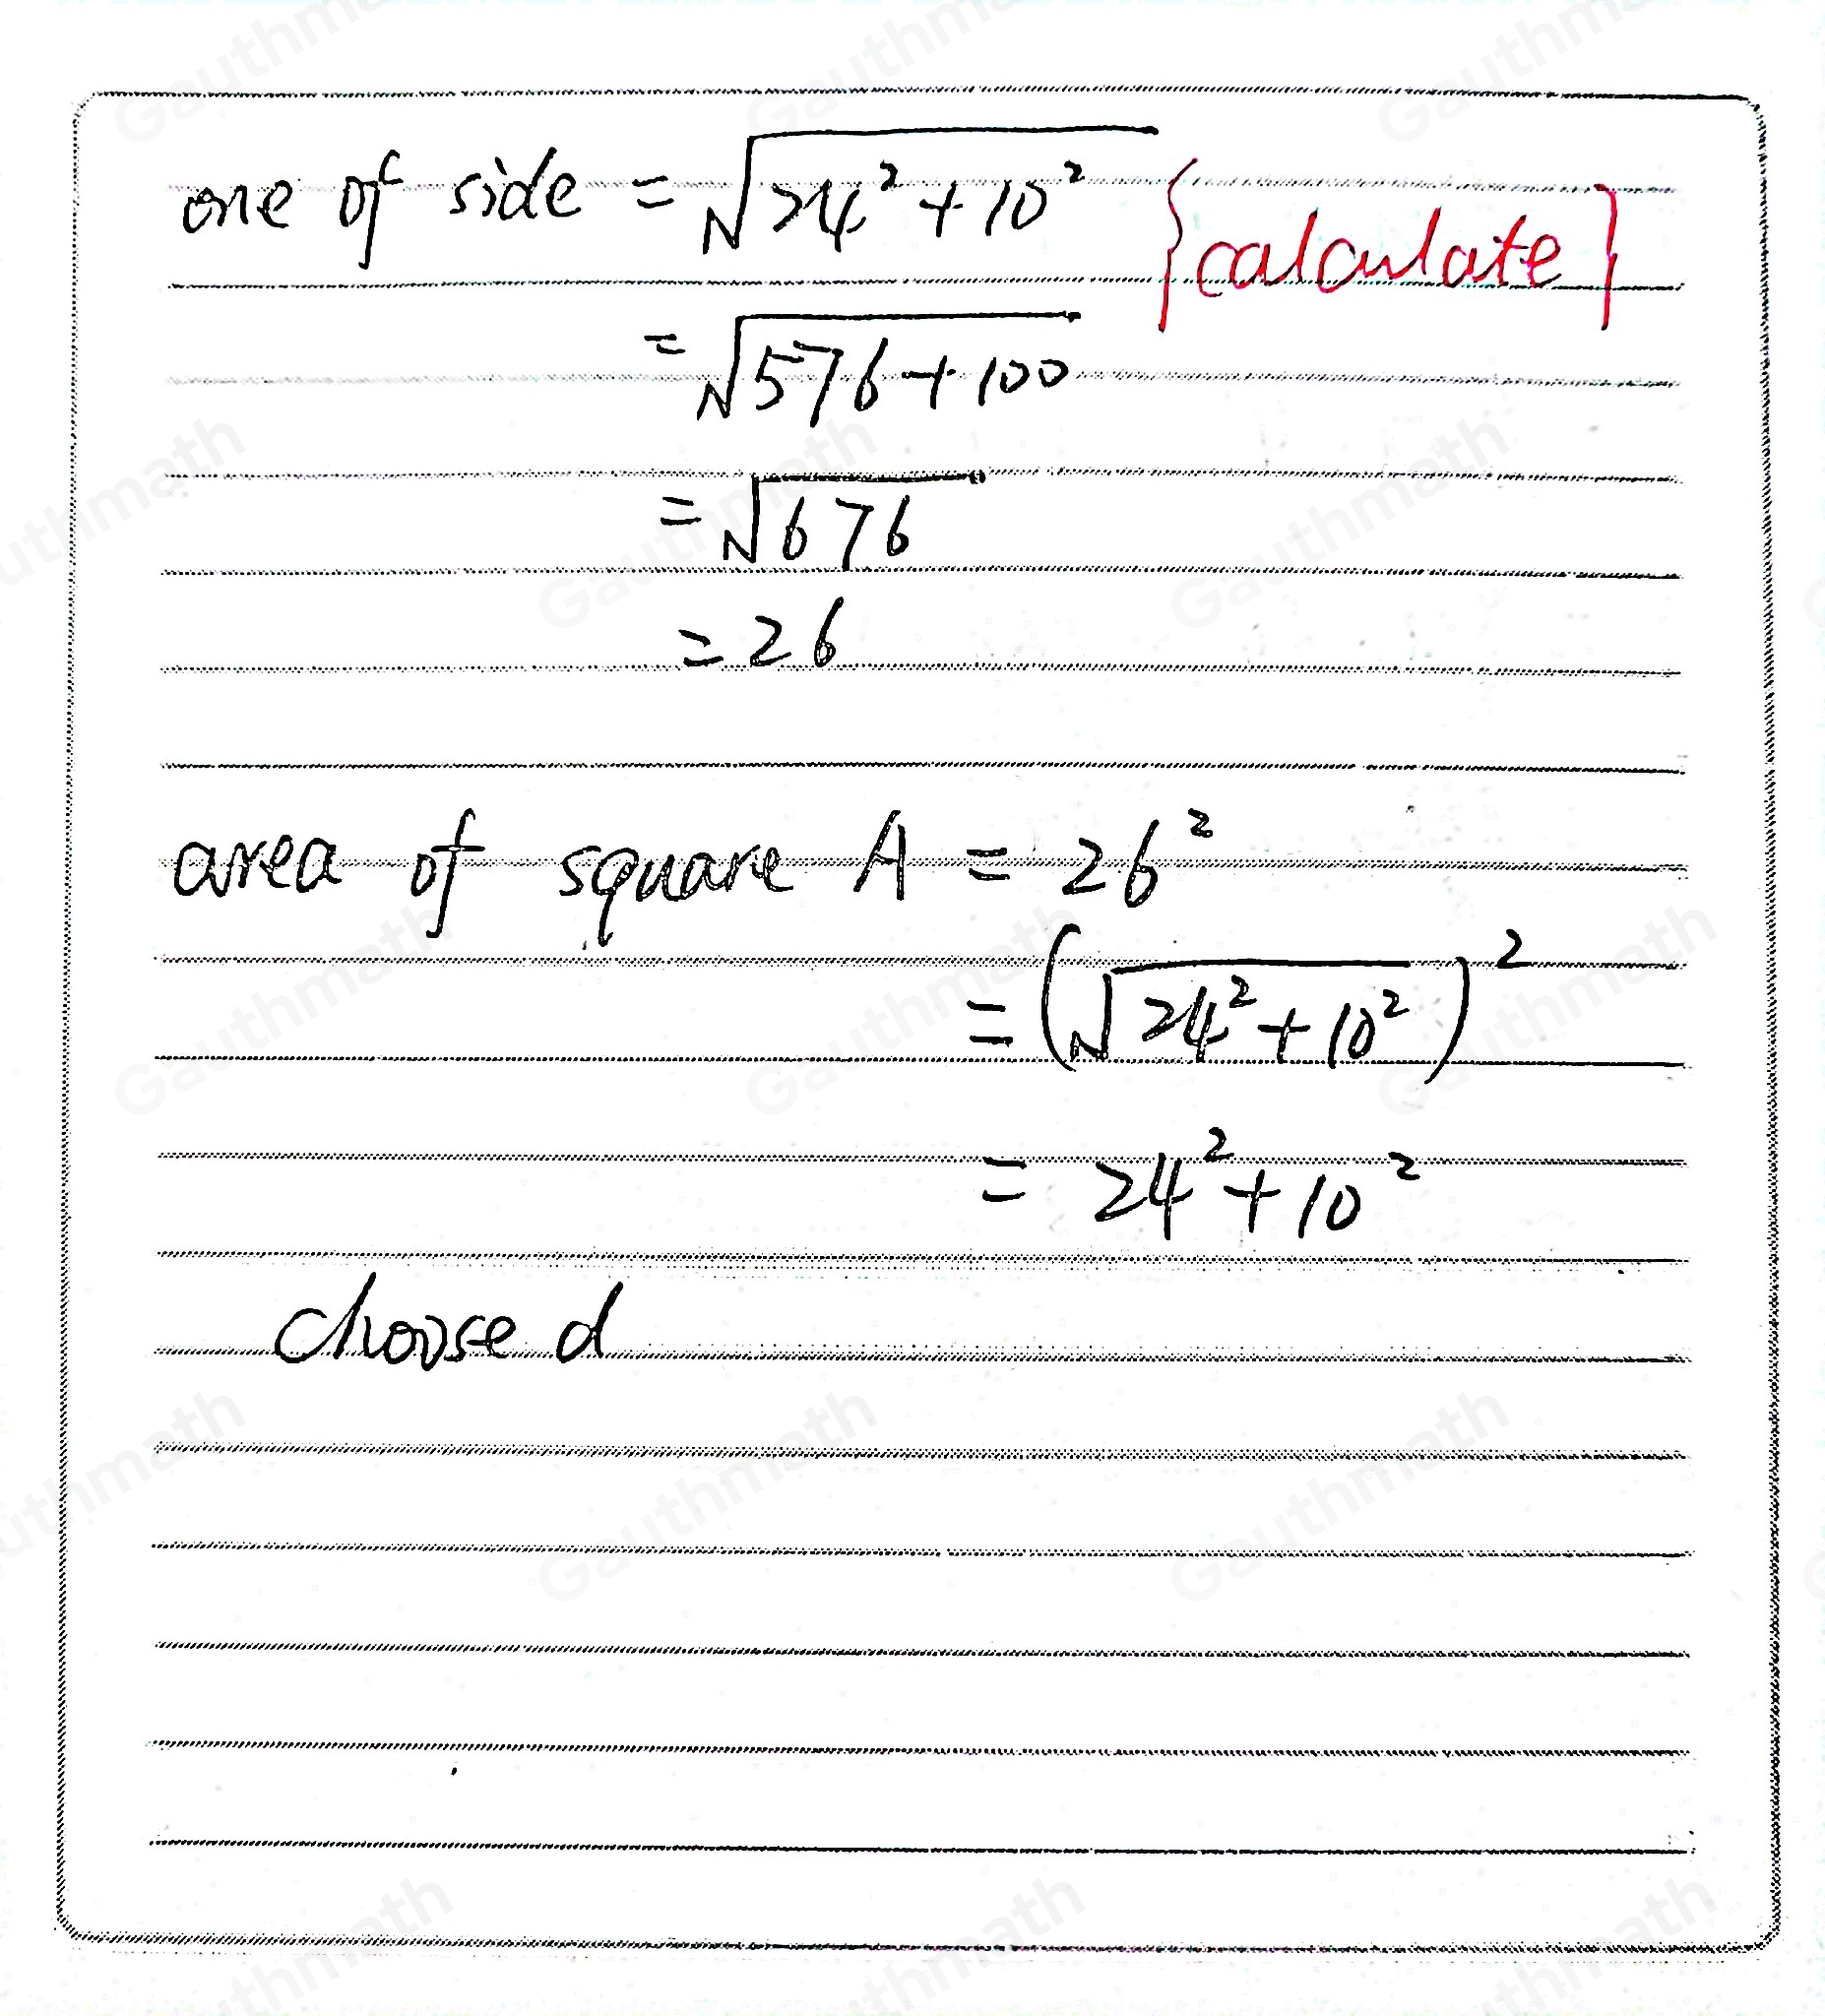 one of side = √(24² + 10²) {calculate}
= √(576 + 100)
= √676
= 26
area of square A = 26²
= (√(24² + 10²))²
= 24² + 10²
choose d
Gauthmath